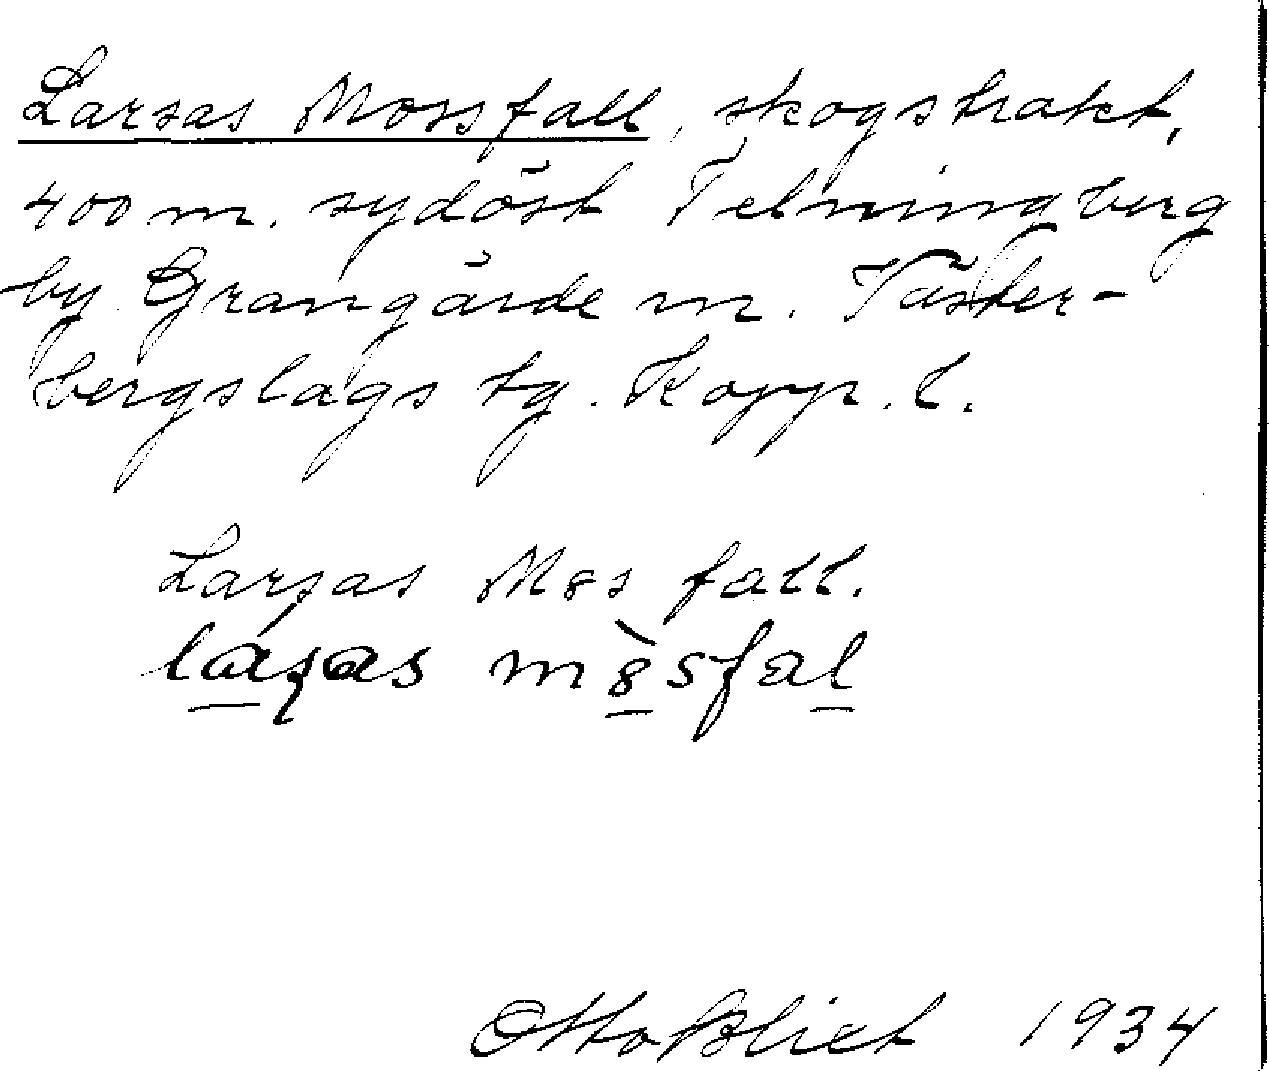 Larsas Mossfall, skogstrakt,
400 m. sydöst Telningberg
by Grangärde sn. Väster-
bergslags tg. Kopp. l.
Larsas Mos fall.
Otto Blixt 1934